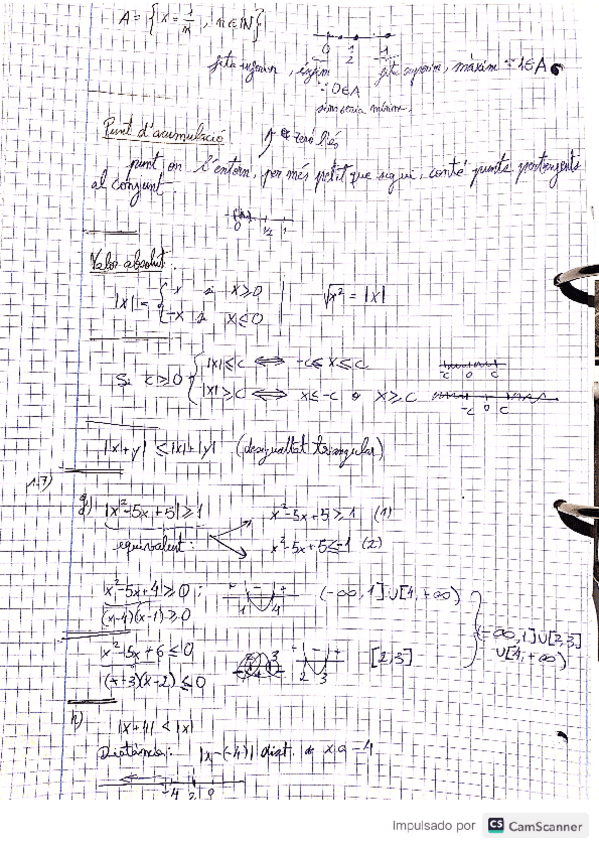 A = { x = 1/n , n ∈ ℕ }
0 1/2 1
fita inferior, ínfim fita superior, màxim ∵ 1∈A
∵ 0∉A
sinó seria mínim.
Punt d'acumulació
punt on l'entorn, per més petit que sigui, conté punts pertanyents
al conjunt.
0 1/2 1
Valor absolut.
|x| = { x si x ≥ 0 √x² = |x|
-x si x ≤ 0
Si c ≥ 0 { |x| ≤ c ⟺ -c ≤ x ≤ c -c 0 c
|x| > c ⟺ x ≤ -c o x ≥ c -c 0 c
|x+y| ≤ |x|+|y| (desigualtat triangular)
1.7)
g) |x²-5x+5| ≥ 1 x²-5x+5 ≥ 1 (1)
equivalent: x²-5x+5 ≤ -1 (2)
x²-5x+4 ≥ 0 ; + - + 1 4 (-∞, 1] ∪ [4, +∞)
(x-4)(x-1) ≥ 0
(-∞, 1] ∪ [2, 3]
∪ [4, +∞)
x²-5x+6 ≤ 0 + - + 2 3 [2, 3]
(x-3)(x-2) ≤ 0
h)
|x+4| < |x|
Distància: |x-(-4)| dist. de x a -4
-4 -2 0
Impulsado por CS CamScanner